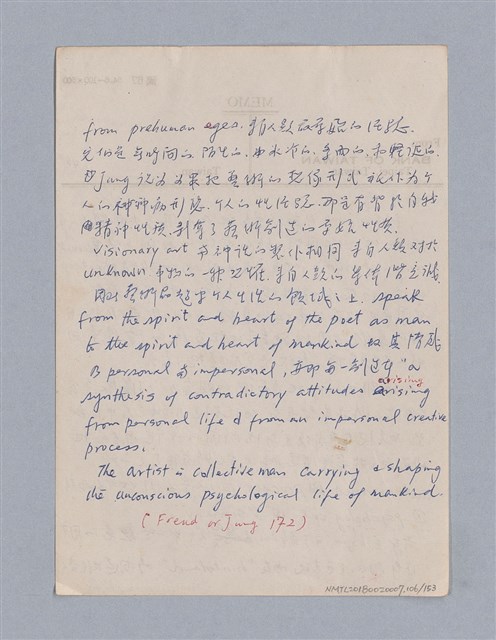 from prehuman ages. 來自人類最原始的經驗.
它們是無時間的, 陌生的, 而冷的, 多面的, 和怪誕的.
Jung 認為如果把藝術的 形式視作為個
人的神經病形態, 個人的性經驗, 那是有背於自我
精神性質, 剝奪了藝術創造的原始性質.
Visionary art 與神話的 相同 來自人類對於
unknown 事物的一種恐懼, 來自人類的集體潛意識.
因此藝術品超乎個人生活的領域之上. speak
from the spirit and heart of the poet as man
to the spirit and heart of mankind 故其情感
personal 而 impersonal, 每一創造者 "a
arising
synthesis of contradictory attitudes arising
from personal life & from an impersonal creative
process.
The artist is collective man carrying & shaping
the unconscious psychological life of mankind.
(Freud or Jung 172)
NMTL20180020007, 106/153
MEMO
BANK OF TAIWAN